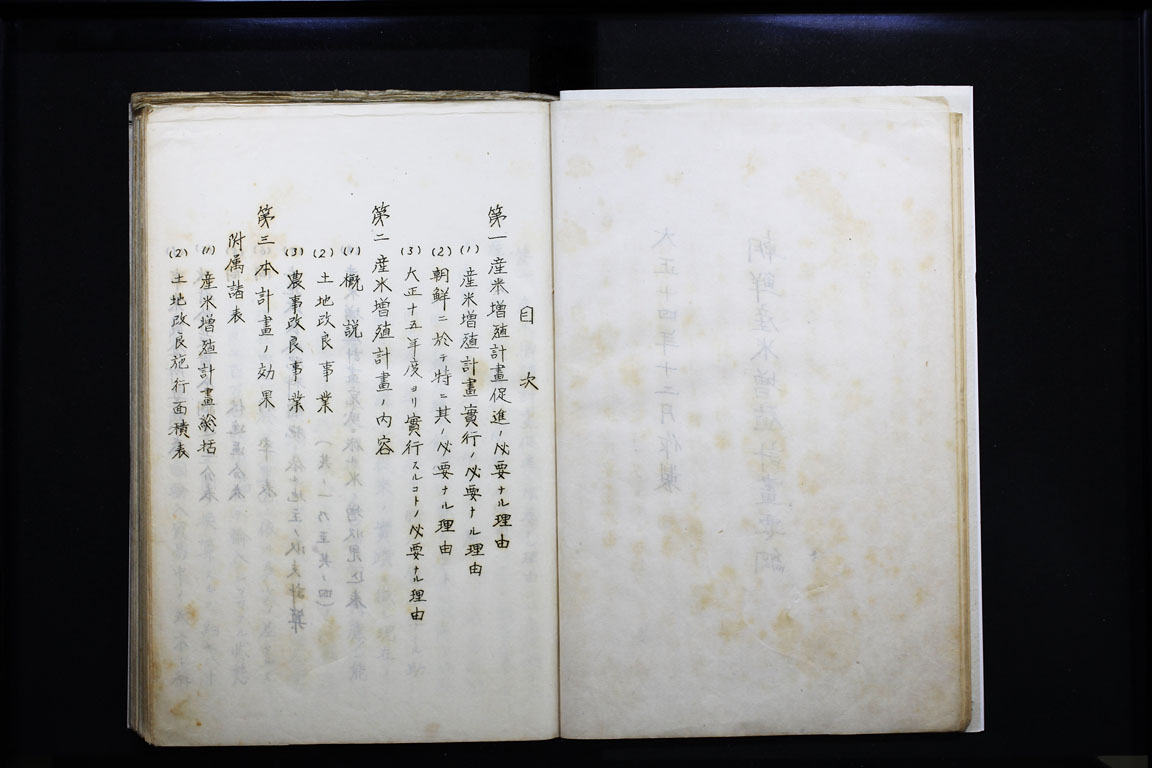 朝鮮産米増殖計畫要綱
大正十四年十二月作製
目次
第一 産米増殖計畫促進ノ必要ナル理由
(1) 産米増殖計畫實行ノ必要ナル理由
(2) 朝鮮ニ於テ特ニ其ノ必要ナル理由
(3) 大正十五年度ヨリ實行スルコトノ必要ナル理由
第二 産米増殖計畫ノ内容
(1) 概説
(2) 土地改良事業
(3) 農事改良事業
第三 本計畫ノ効果
附属諸表
(1) 産米増殖計畫総括
(2) 土地改良施行面積表